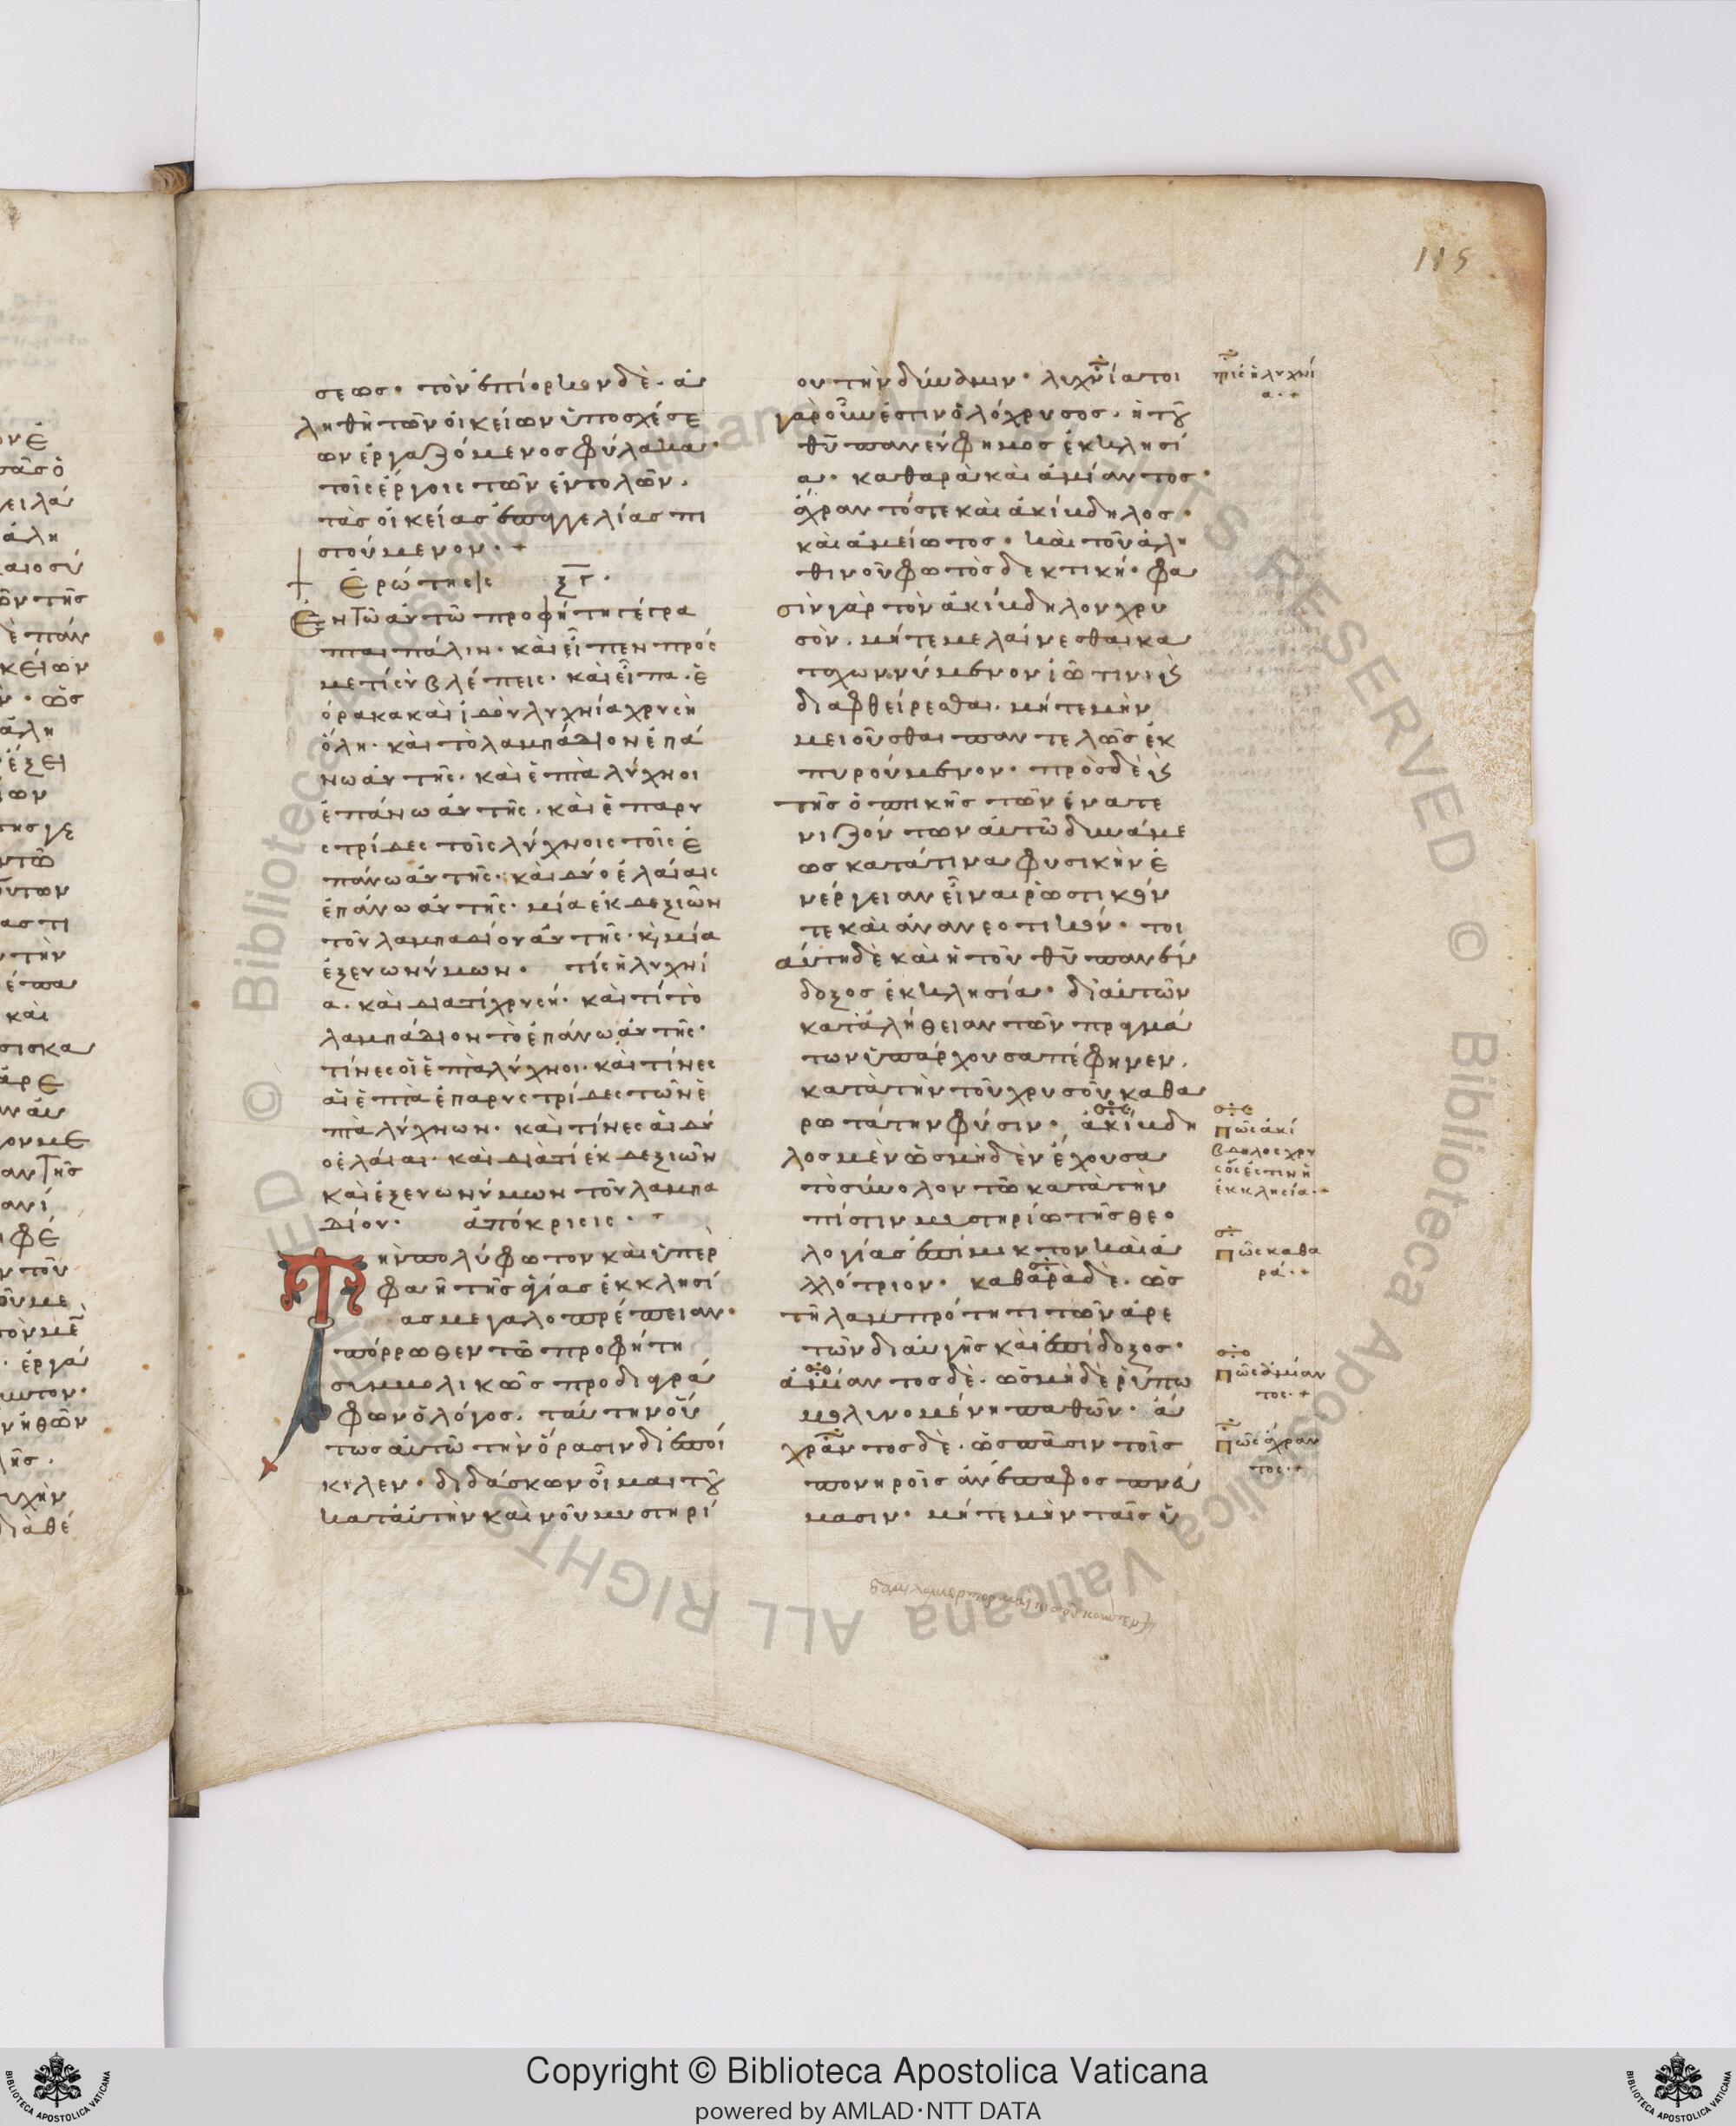 115
σεως· τὸν ἐπίορκον δὲ. ἀ
ληθῆ τῶν οἰκείων ὑποσχέσε
ων ἐργαζόμενος φύλακα·
τοῖς ἔργοις τῶν ἐντολῶν.
τὰς οἰκείας ἐπαγγελίας πι
στούμενον·
Ἐρώτησις ξγ·
Ἐν τῶ αὐτῶ προφήτη γέγρα
πται πάλιν· καὶ εἶπεν πρός
με τί σὺ βλέπεις· καὶ εἶπα· ἑ
όρακα καὶ ἰδοὺ λυχνία χρυσῆ
ὅλη· καὶ τὸ λαμπάδιον ἐπά
νω αὐτῆς· καὶ ἑπτὰ λύχνοι
ἐπάνω αὐτῆς· καὶ ἑπταρυ
στρίδες τοῖς λύχνοις τοῖς ἐ
πάνω αὐτῆς· καὶ δύο ἐλαίαις
ἐπάνω αὐτῆς· μία ἐκ δεξιῶν
τοῦ λαμπαδίου αὐτῆς· κ μία
ἐξ εὐωνύμων· τίς ἡ λυχνί
α· καὶ διατί χρυσῆ· καὶ τί τὸ
λαμπάδιον τὸ ἐπάνω αὐτῆς·
τίνες οἱ ἑπτὰ λύχνοι· καὶ τίνες
αἱ ἑπτὰ ἐπαρυστρίδες τῶν ἑ
πτὰ λύχνων· καὶ τίνες αἱ δύ
ο ἐλαίαι· καὶ διατί ἐκ δεξιῶν
καὶ ἐξ εὐωνύμων τοῦ λαμπα
δίου· ἀπόκρισις·
Τὴν πολύφωτον καὶ ὑπερ
φαῆ τῆς ἁγίας ἐκκλησί
ας μεγαλοπρέπειαν·
πόρρωθεν τῶ προφήτη
συμβολικῶς προδιαγρά
φων ὁ λόγος. ταύτην οὕ
τως αὐτῶ τὴν ὅρασιν διεποί
κιλεν· διδάσκων οἶμαι τοῦ
κατ' αὐτὴν καινοῦ μυστηρί
ου τὴν δύναμιν· λυχνία τοι
γαροῦν ἐστιν ὁλόχρυσος. ἡ τοῦ
θυ πανεύφημος ἐκκλησί
α· καθαρὰ καὶ ἀμίαντος·
ἄχραντός τε καὶ ἀκίβδηλος·
καὶ ἀμείωτος· καὶ τοῦ ἀλη
θινοῦ φωτὸς δεκτική· φα
σὶν γὰρ τὸν ἀκίβδηλον χρυ
σὸν. μήτε μελαίνεσθαι κα
ταχωννύμενον ἰῶ τινι ἢ
διαφθείρεσθαι. μήτε μὴν
μειοῦσθαι παντελῶς ἐκ
πυρούμενον· πρὸς δὲ ἢ
τῆς ὀπτικῆς τῶν ἐνατε
νιζόντων αὐτῶ δυνάμε
ως κατά τινα φυσικὴν ἐ
νέργειαν εἶναι ῥωστικόν
τε καὶ ἀνανεοτικόν· τοι
αύτη δὲ καὶ ἡ τοῦ θυ πανέν
δοξος ἐκκλησία· δι' αὐτῶν
κατ' ἀλήθειαν τῶν πραγμά
των ὑπάρχουσα πέφηνεν.
κατὰ τὴν τοῦ χρυσοῦ καθα
ρωτάτην φύσιν· ἀκίβδη
λος μὲν ὡς μηδὲν ἔχουσα
τὸ σύνολον τῶ κατὰ τὴν
πίστιν μυστηρίω τῆς θεο
λογίας ἐπίμικτον καὶ ἀ
λλότριον· καθαρὰ δὲ. ὡς
τῆ λαμπρότητι τῶν ἀρε
τῶν διαυγὴς καὶ ἐπίδοξος·
ἀμίαντος δὲ. ὡς μηδενὶ ῥύπω
μολυνομένη παθῶν· ἄ
χραντος δὲ. ὡς πᾶσιν τοῖς
πονηροῖς ἀνέπαφος πνεύ
μασιν· μήτε μὴν ταῖς ὑ
τίς ἡ λυχνί
α·
Πῶς ἀκί
βδηλος χρυ
σός ἐστιν ἡ
ἐκκλησία·
Πῶς καθα
ρά·
Πῶς ἀμίαν
τος·
Πῶς ἄχραν
τος·
Copyright © Biblioteca Apostolica Vaticana
powered by AMLAD·NTT DATA